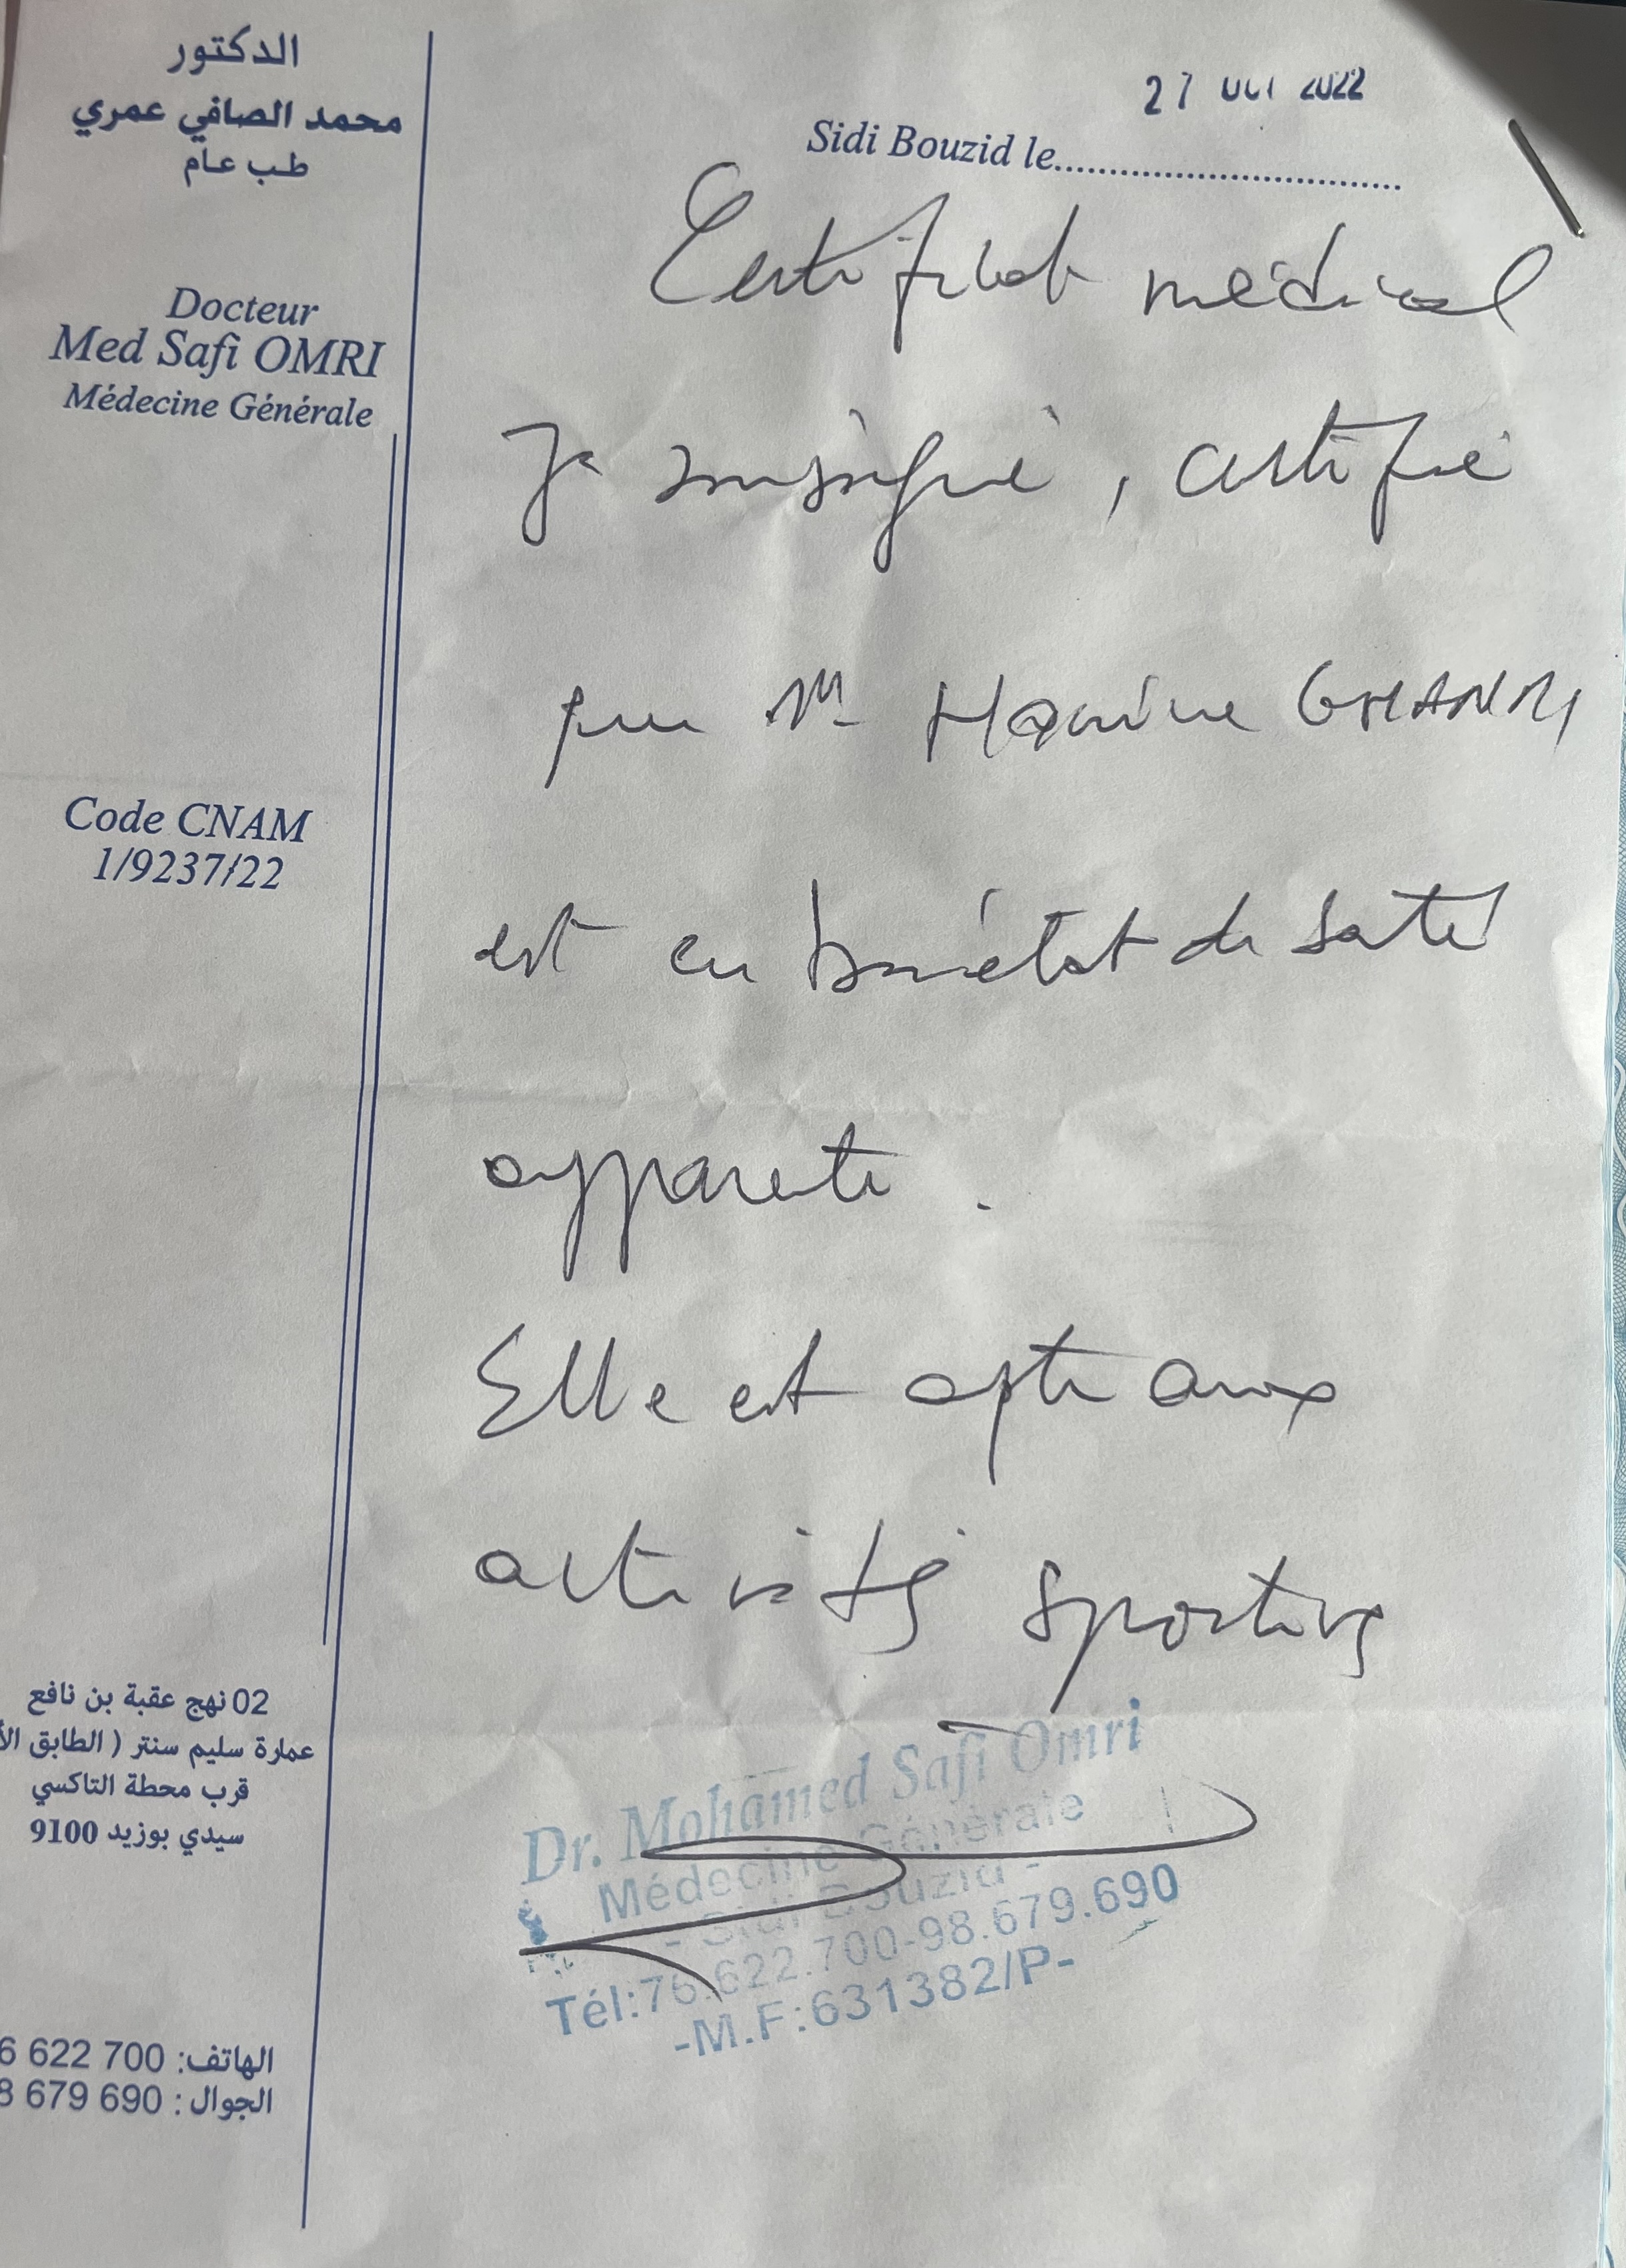 الدكتور
محمد الصافي عمري
طب عام
Docteur
Med Safi OMRI
Médecine Générale
Code CNAM
1/9237/22
02 نهج عقبة بن نافع
عمارة سليم سنتر ( الطابق الأ
قرب محطة التاكسي
سيدي بوزيد 9100
الهاتف: 6 622 700
الجوال : 8 679 690
27 OCT 2022
Sidi Bouzid le
Certificat médical
Je soussigné, certifie
que M GHANMI
est en bon état de santé
apparente.
Elle est apte aux
activités sportives
Dr. Mohamed Safi Omri
Médecine Générale
- Sidi Bouzid -
Tél:76.622.700-98.679.690
-M.F:631382/P-